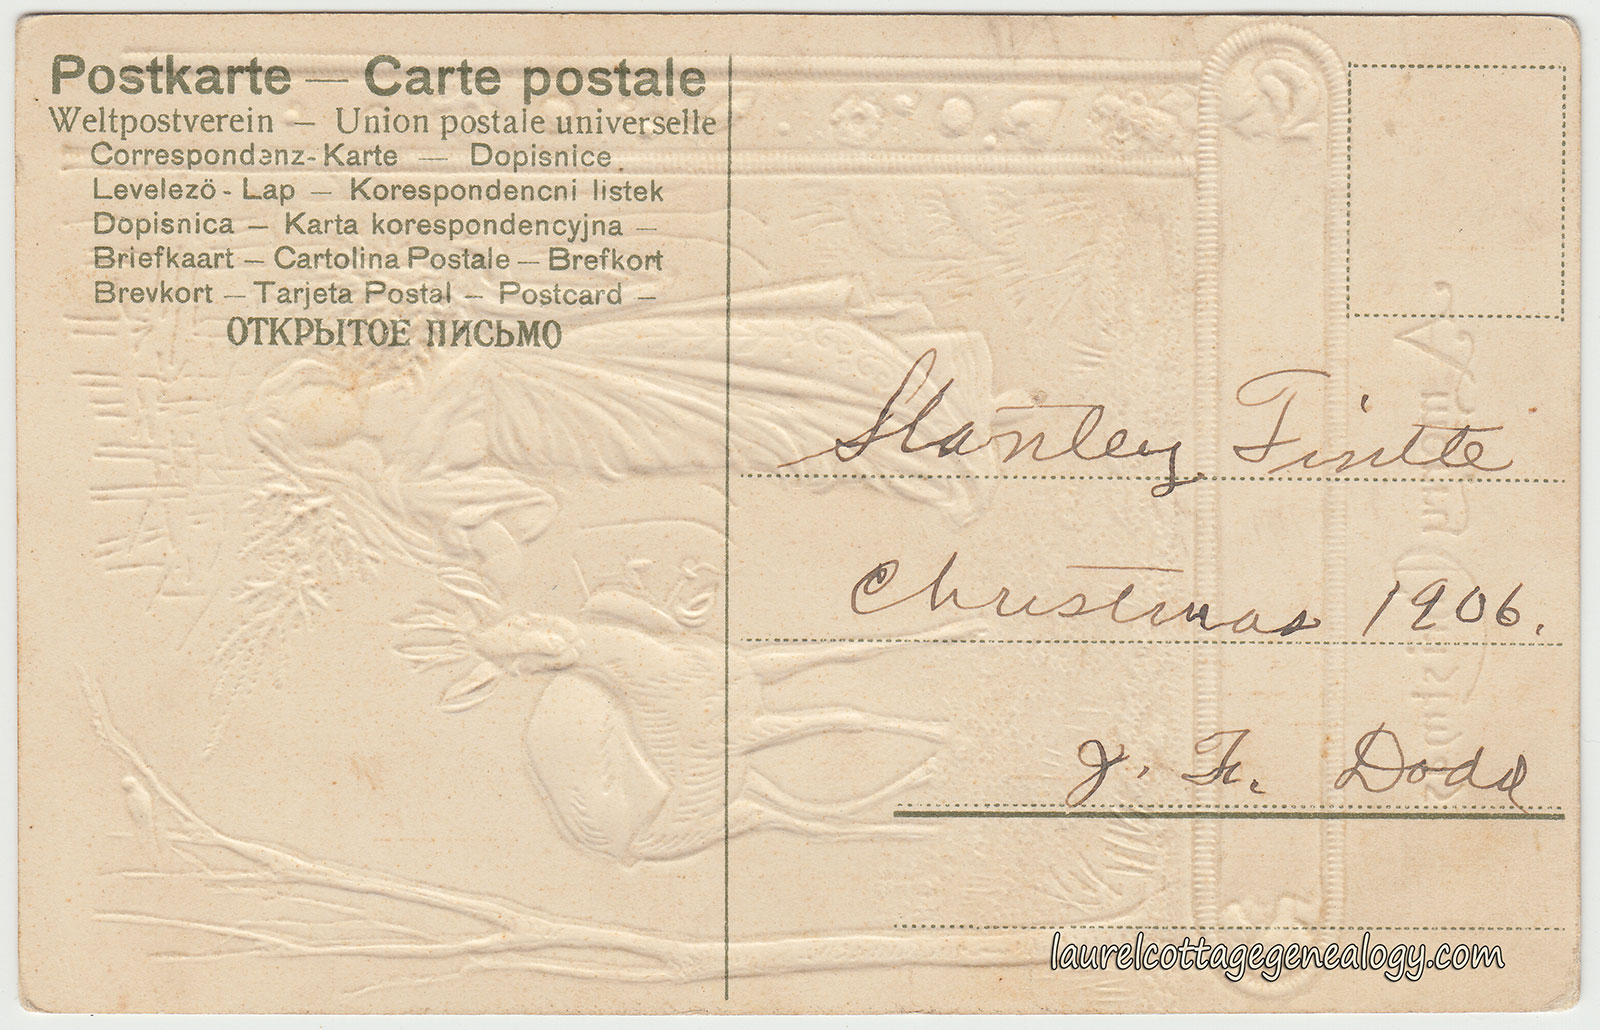 Postkarte — Carte postale
Weltpostverein — Union postale universelle
Correspondenz-Karte — Dopisnice
Levelező - Lap — Korespondencni listek
Dopisnica — Karta korespondencyjna —
Briefkaart — Cartolina Postale — Brefkort
Brevkort — Tarjeta Postal — Postcard —
ОТКРЫТОЕ ПИСЬМО
Stanley
Christmas 1906.
J. F. Dodd
laurelcottagegenealogy.com